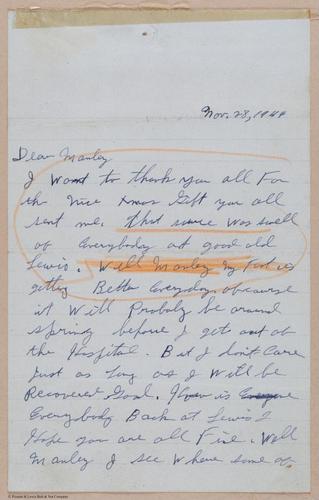 Nov. 28, 1944
Dear Manley
I Want to thank you all For
the Nice Xmas Gift you all
sent me. that sure was swell
of Everybody at good old
Lewis. Well Manley my Foot is
getting Better Everyday of course
it Will Probaly be around
Spring before I get out of
the Hospital. But I don't Care
Just as Long as I Will be
Recovered Good. How is
Everybody Back at Lewis I
Hope you are all Fine. Well
Manley I see Where some of